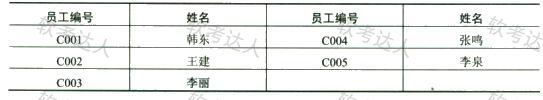 员工编号 姓名 员工编号 姓名
C001 韩东 C004 张鸣
C002 王建 C005 李泉
C003 李丽
软考达人
软考达人
软考达人